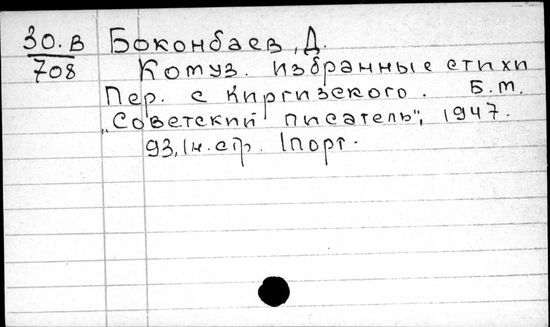 30.в Боконбаев, Д.
708 Комуз. избранные стихи
Пер. с Киргизского. Б.м.
„Советский писатель", 1947.
93,1н.стр. 1порт.